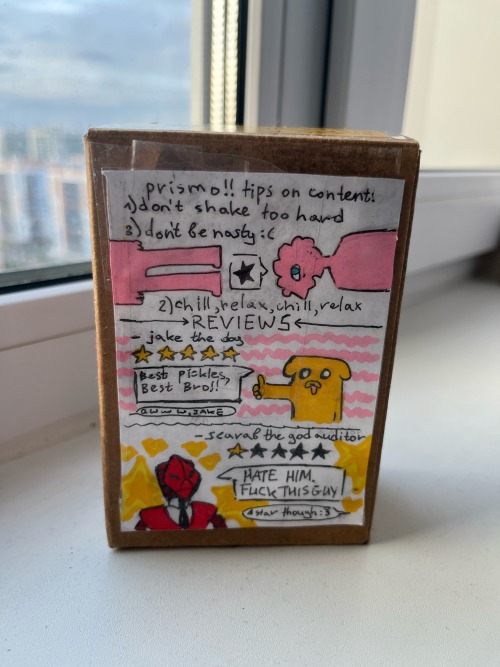 prismo!! tips on content:
1) don't shake too hard
3) don't be nasty :(
2) chill, relax, chill, relax
REVIEWS
- jake the dog
Best pickles,
Best Bro!!
- scarab the god auditor
HATE HIM.
FUCK THIS GUY
star though :3